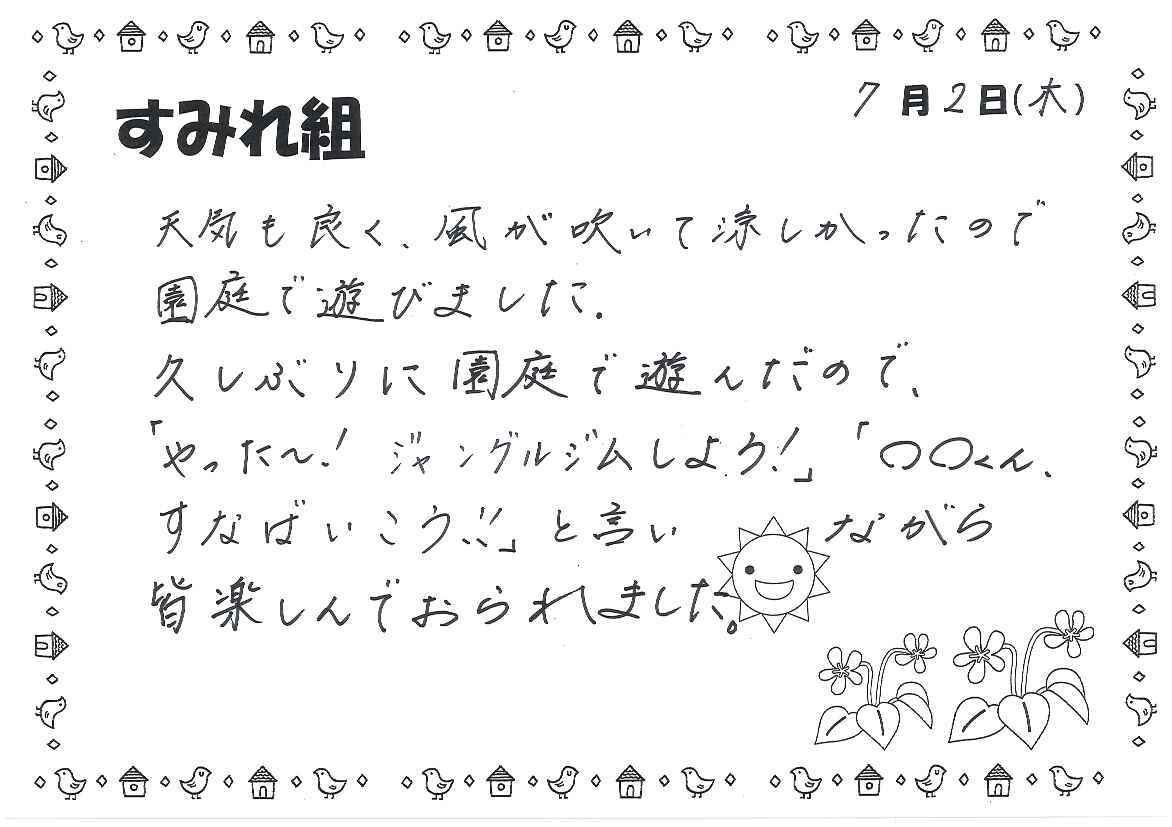 すみれ組
7月2日(木)
天気も良く、風が吹いて涼しかったので
園庭で遊びました。
久しぶりに園庭で遊んだので、
「やった〜！ジャングルジムしよう！」「〇〇くん、
すなばいこう!!」と言いながら
皆楽しんでおられました。